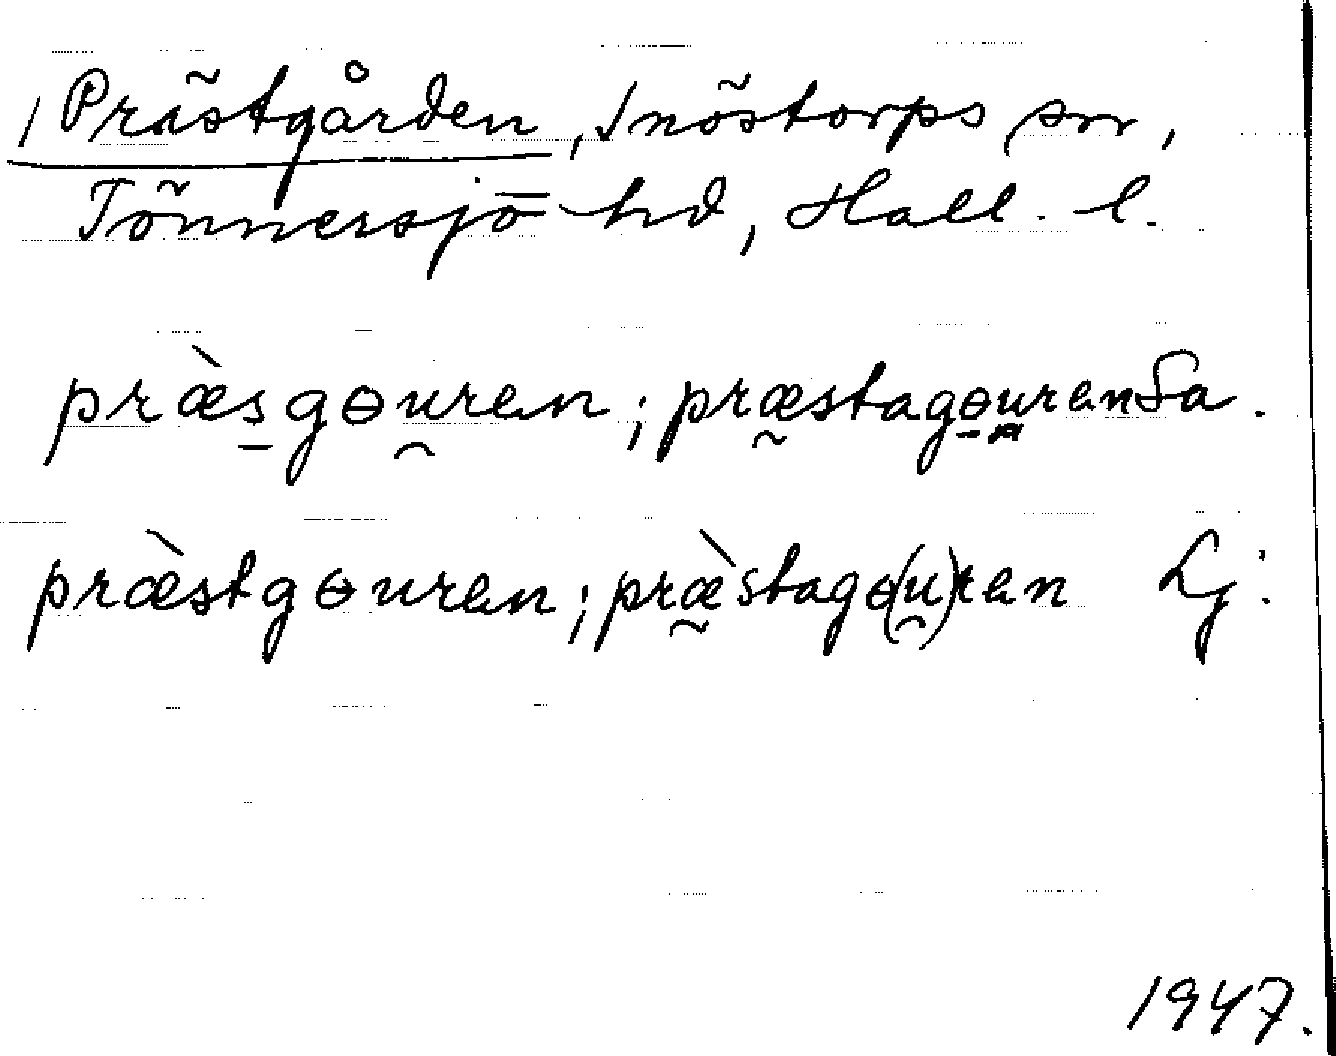 Prästgården, Snöstorps sn,
Tönnersjö hd, Hall. l.
præ̀sgɵuren; præstagɵuren Sa.
præ̀stgɵuren; præ̀stagɵ(u)ren Lj.
1947.